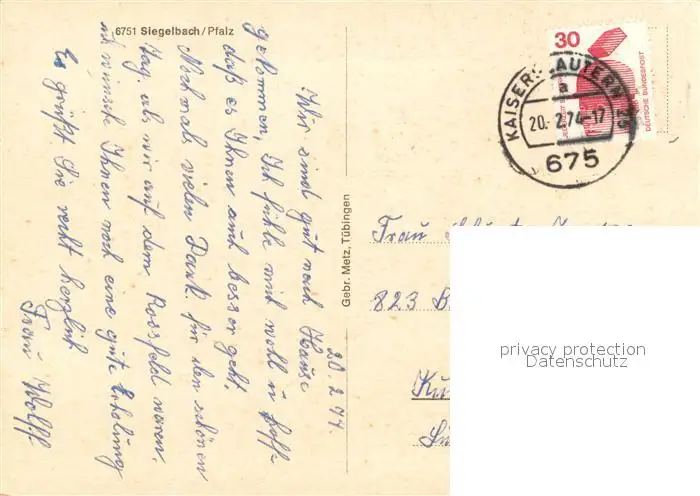 6751 Siegelbach/Pfalz
20.2.74.
Wir sind gut nach Hause
gekommen, Ich fühle mich wohl u hoff-
daß es Ihnen auch besser geht.
Nochmals vielen Dank. für den schönen
Tag. als wir auf dem Rossfeld waren.
ich wünsche Ihnen noch eine gute Erholung
Es grüßt Sie recht herzlich
Frau Wolff
Gebr. Metz, Tübingen
30
DEUTSCHE BUNDESPOST
KAISERSLAUTERN
a
20.-2.74-17
675
Frau
823 B
privacy protection
Datenschutz